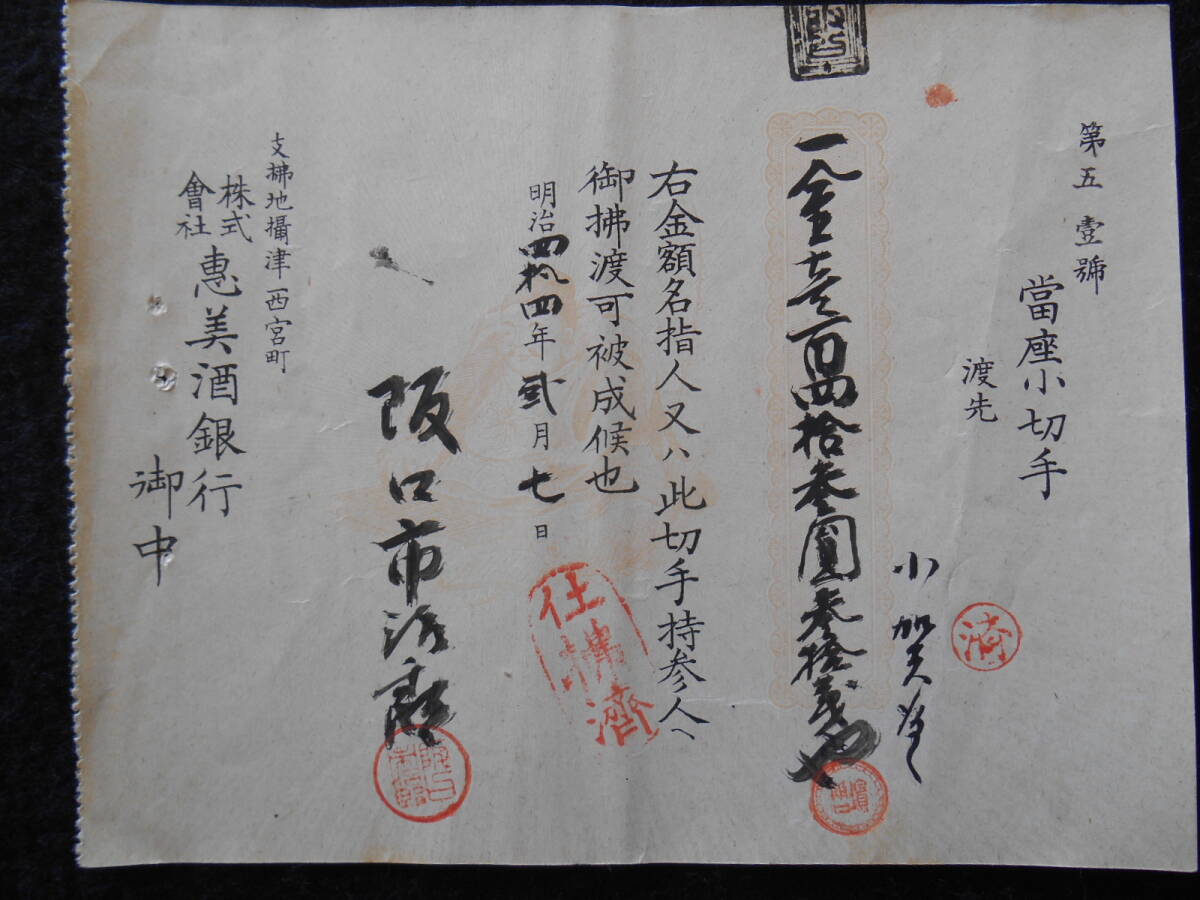 第五壹號
當座小切手
渡先
小加
濟
一金壹百四拾参圓参拾
右金額名指人又ハ此切手持参人ヘ
御拂渡可被成候也
明治四拾四年貳月七日
仕拂濟
阪口市
支拂地攝津西宮町
株式會社惠美酒銀行
御中